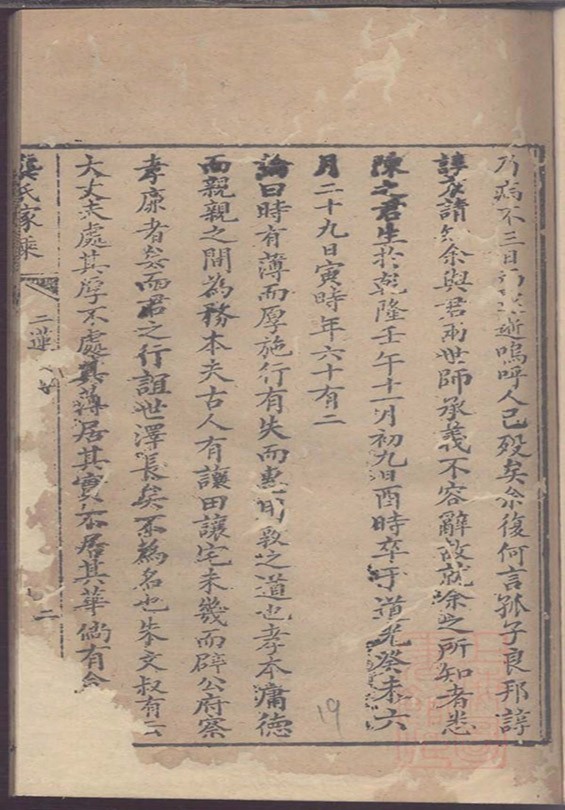 乃病不三日而長逝嗚呼人已殁矣余復何言孤子良邦諄
諄哀請余與君兩世師承義不容辭故就余之所知者悉
陳之君生於乾隆壬午十一月初九日酉時卒于道光癸未六
月二十九日寅時年六十有二
論曰時有薄而厚施行有失而惠用敦之道也孝本庸德
而親親之間為務本夫古人有讓田讓宅未幾而辟公府察
孝廉者矣而君之行誼世澤長矣不為名也朱文叔有云
大丈夫處其厚不處其薄居其實不居其華尚有
龔氏家乘
二蓮
二
19